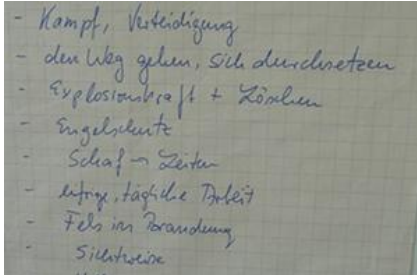 - Kampf, Verteidigung
- den Weg gehen, sich durchsetzen
- Explosionskraft + Löschen
- Engelschutz
- Schaf - Zeiten
- eifrige, tägliche Arbeit
- Fels in Brandung
- Sichtweise